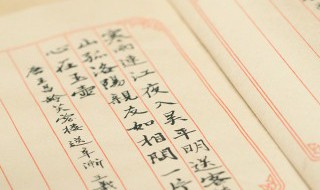 寒雨連江夜入吴平明送客
山孤洛陽親友如相問一片
心在玉壺
唐王昌齡芙蓉楼送辛渐